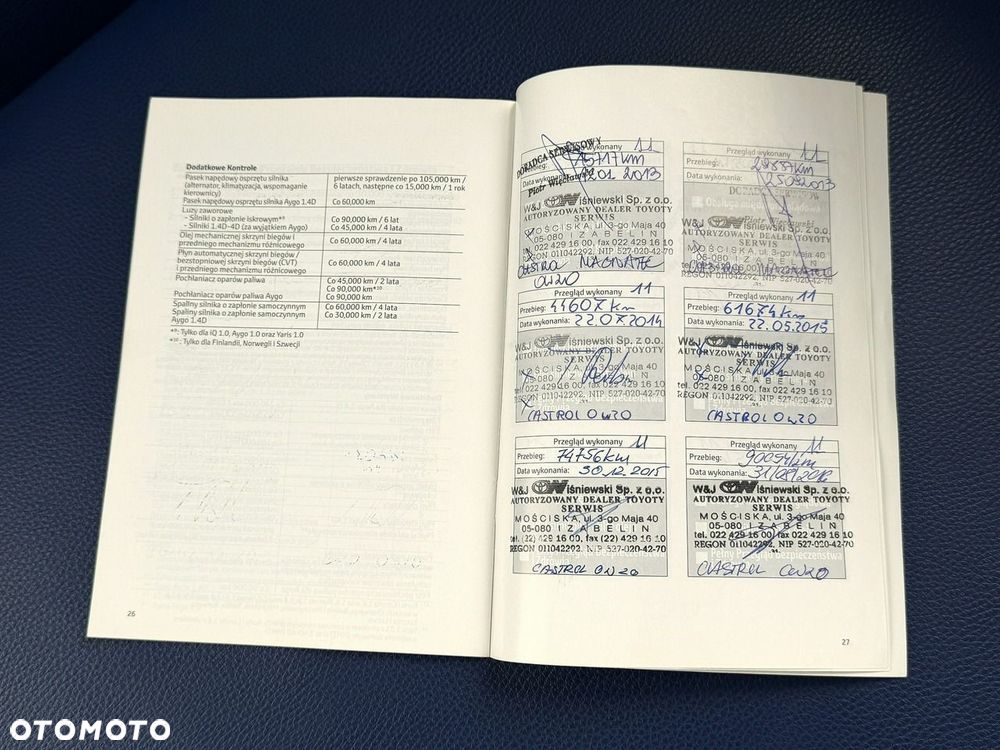 Dodatkowe Kontrole
Pasek napędowy osprzętu silnika
(alternator, klimatyzacja, wspomaganie
kierownicy)
pierwsze sprawdzenie po 105,000 km /
6 latach, następne co 15,000 km / 1 rok
Pasek napędowy osprzętu silnika Aygo 1.4D
Co 60,000 km
Luzy zaworowe
- Silniki o zapłonie iskrowym*⁹
- Silniki 1.4D-4D (za wyjątkiem Aygo)
Co 90,000 km / 6 lat
Co 45,000 km / 4 lata
Olej mechanicznej skrzyni biegów i
przedniego mechanizmu różnicowego
Co 60,000 km / 4 lata
Płyn automatycznej skrzyni biegów /
bezstopniowej skrzyni biegów (CVT)
i przedniego mechanizmu różnicowego
Co 60,000 km / 4 lata
Pochłaniacz oparów paliwa
Co 45,000 km / 2 lata
Co 90,000 km*¹⁰
Pochłaniacz oparów paliwa Aygo
Co 90,000 km
Spaliny silnika o zapłonie samoczynnym
Co 60,000 km / 4 lata
Spaliny silnika o zapłonie samoczynnym
Aygo 1.4D
Co 30,000 km / 2 lata
*⁹: Tylko dla iQ 1.0, Aygo 1.0 oraz Yaris 1.0
*¹⁰ - Tylko dla Finlandii, Norwegii i Szwecji
26
DORADCA SERWISOWY
11
15717km
Data wykonania:
01 2013
W&J Wiśniewski Sp. z o.o.
AUTORYZOWANY DEALER TOYOTY
SERWIS
MOŚCISKA, ul. 3-go Maja 40
05-080 IZABELIN
022 429 16 00, fax 022 429 16 10
REGON 011042292, NIP 527-020-42-70
CASTROL MAGNATEC
0W20
Przegląd wykonany 11
Przebieg:
Data wykonania:
W&J Wiśniewski Sp. z o.o.
AUTORYZOWANY DEALER TOYOTY
SERWIS
MOŚCISKA, ul. 3-go Maja 40
05-080 IZABELIN
tel. 022 429 16 00, fax 022 429 16 10
REGON 011042292, NIP 527-020-42-70
MAGNATEC
Przegląd wykonany 11
Przebieg: 44607km
Data wykonania: 22.07.2014
W&J Wiśniewski Sp. z o.o.
AUTORYZOWANY DEALER TOYOTY
SERWIS
MOŚCISKA, ul. 3-go Maja 40
05-080 IZABELIN
tel. 022 429 16 00, fax 022 429 16 10
REGON 011042292, NIP 527-020-42-70
CASTROL 0w20
Przegląd wykonany 11
Przebieg: 61674km
Data wykonania: 22.05.2015
W&J Wiśniewski Sp. z o.o.
AUTORYZOWANY DEALER TOYOTY
SERWIS
MOŚCISKA, ul. 3-go Maja 40
05-080 IZABELIN
tel. 022 429 16 00, fax 022 429 16 10
REGON 011042292, NIP 527-020-42-70
CASTROL 0w20
Przegląd wykonany 11
Przebieg: 74756km
Data wykonania: 30.12.2015
W&J Wiśniewski Sp. z o.o.
AUTORYZOWANY DEALER TOYOTY
SERWIS
MOŚCISKA, ul. 3-go Maja 40
05-080 IZABELIN
tel. (22) 429 16 00, fax (22) 429 16 10
REGON 011042292, NIP 527-020-42-70
CASTROL 0W20
Przegląd wykonany 11
Przebieg: 90054km
Data wykonania:
W&J Wiśniewski Sp. z o.o.
AUTORYZOWANY DEALER TOYOTY
SERWIS
MOŚCISKA, ul. 3-go Maja 40
05-080 IZABELIN
tel. 022 429 16 00, fax 022 429 16 10
REGON 011042292, NIP 527-020-42-70
Pełny Przegląd bezpieczeństwa
CASTROL 0W20
27
OTOMOTO